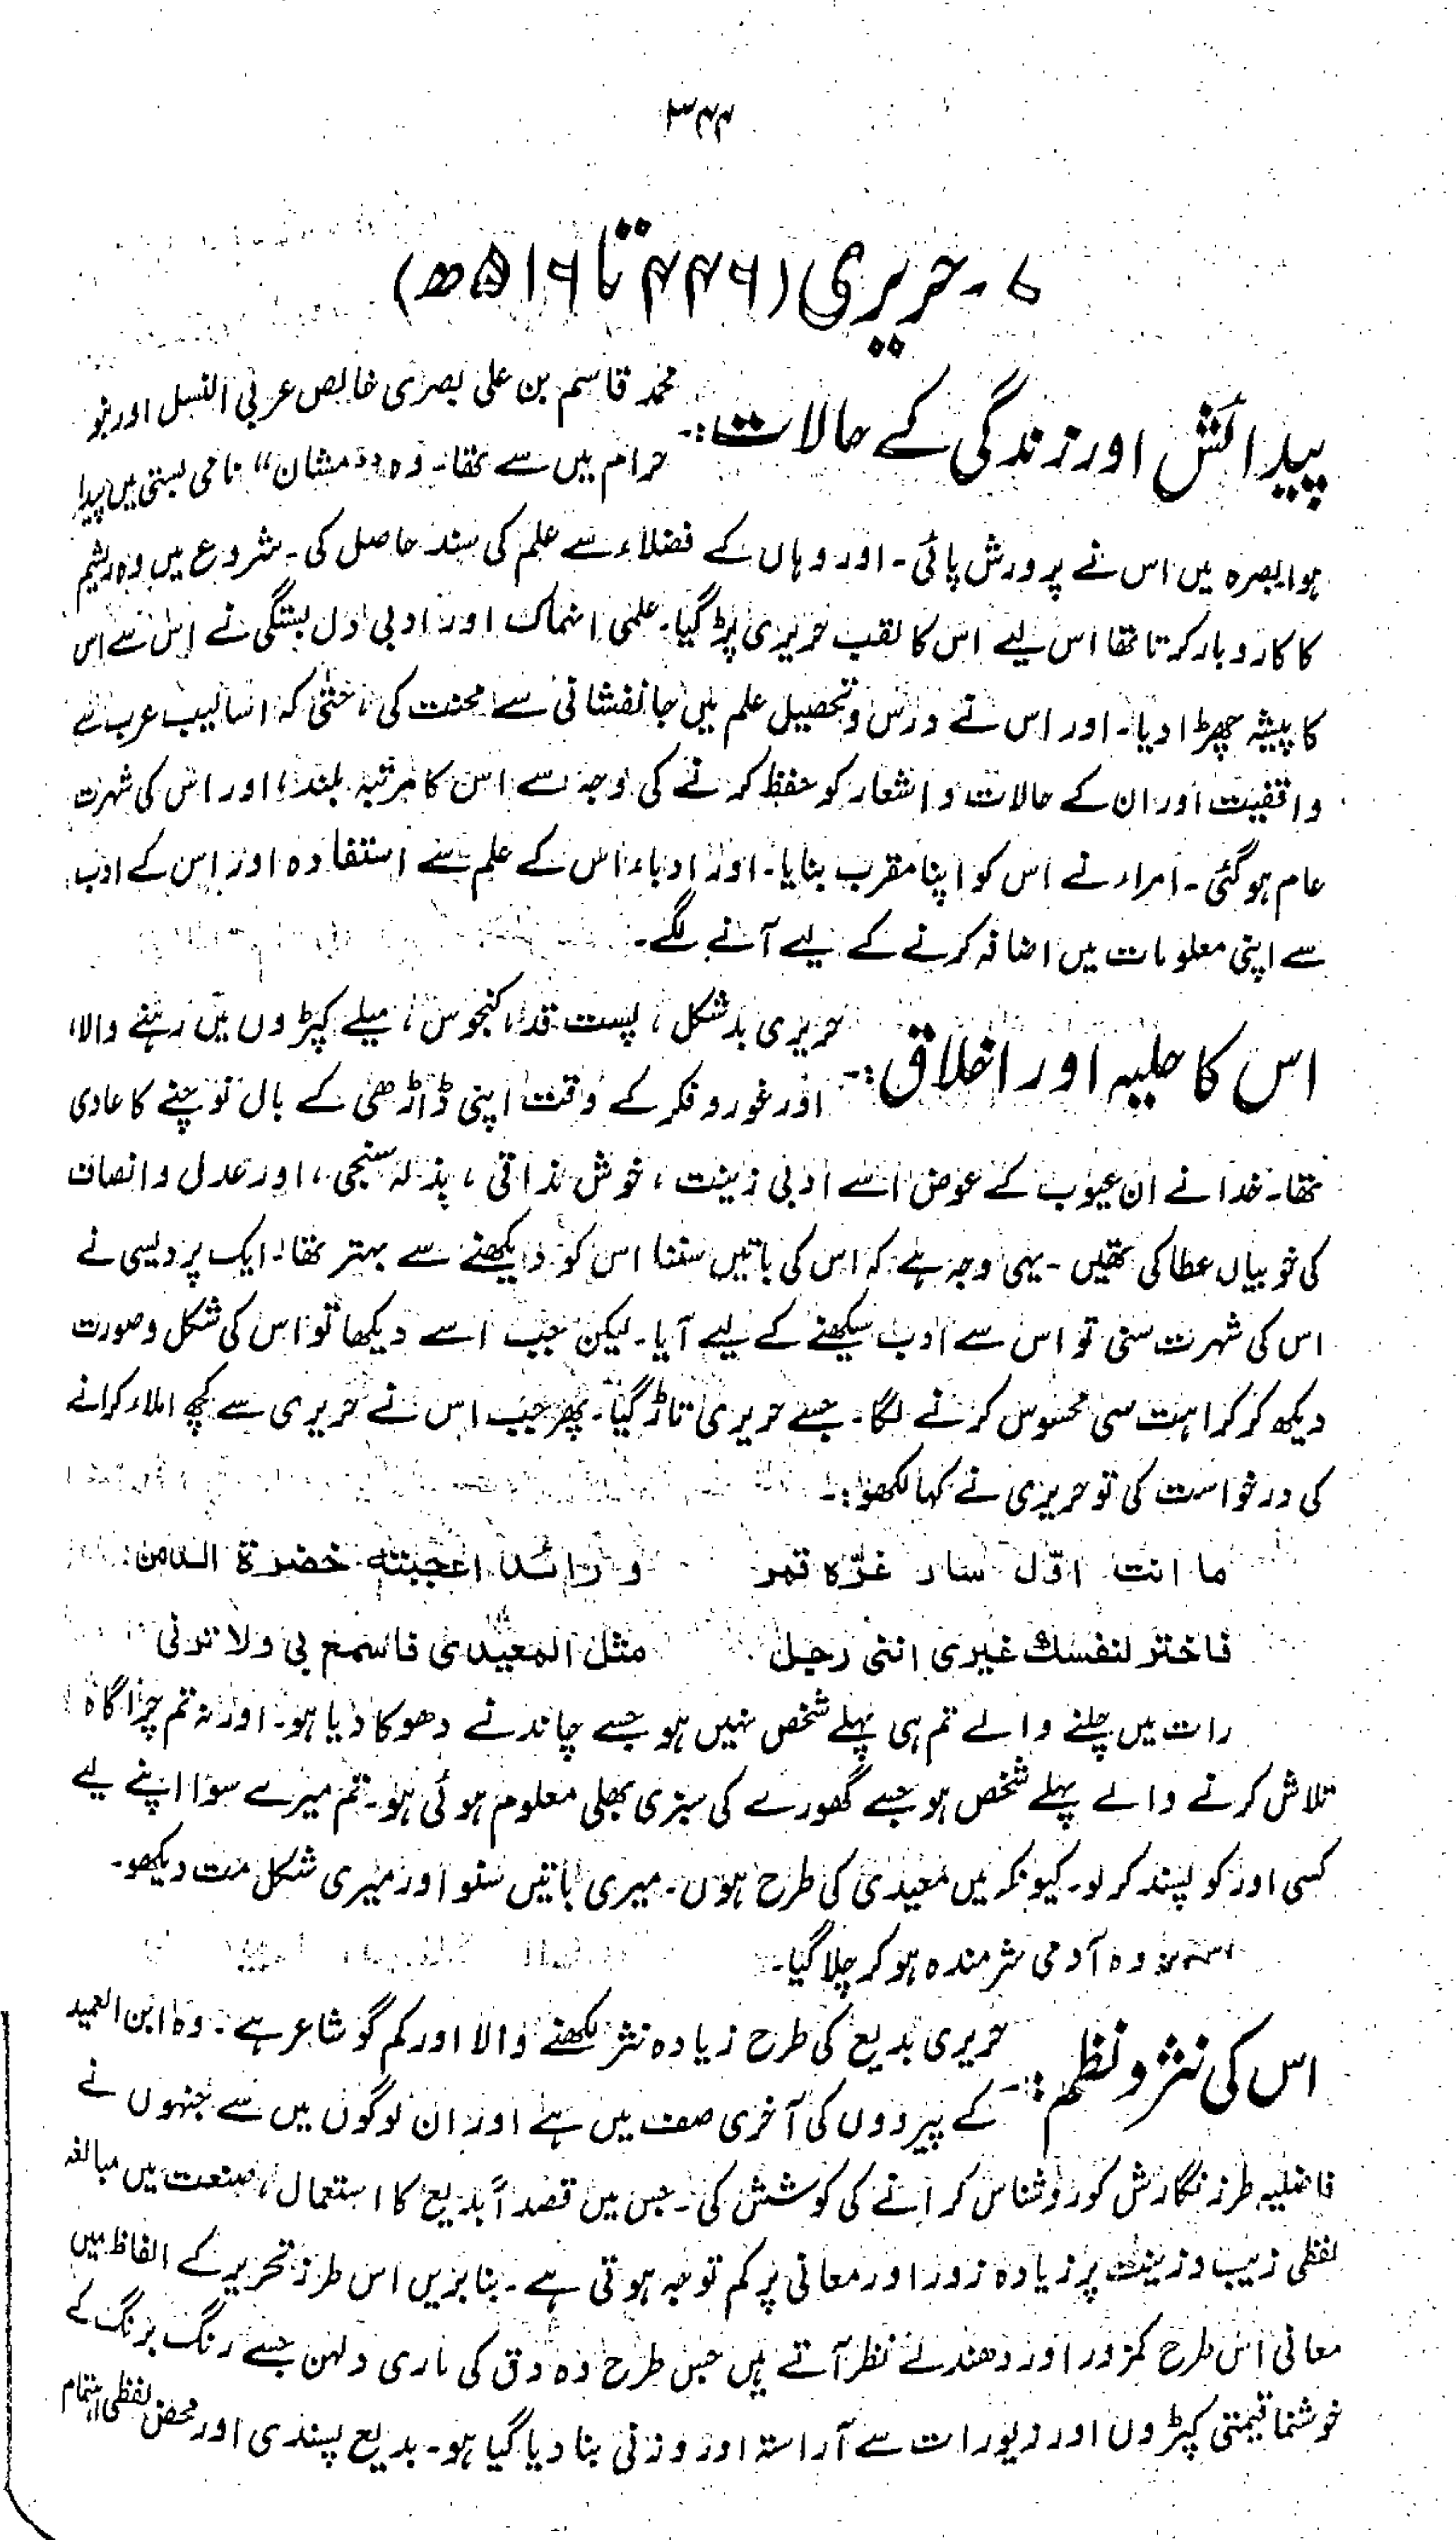 ۳۴۴
۷- حریری (۴۴۶ تا ۵۱۶ھ)
پیدائش اور زندگی کے حالات:- محمد قاسم بن علی بصری خالص عربی النسل اور بنو
حرام میں سے تھا۔ وہ "مشان" نامی بستی میں پیدا
ہوا بصرہ میں اس نے پرورش پائی۔ اور وہاں کے فضلاء سے علم کی سند حاصل کی۔ شروع میں وہ ریشم
کا کاروبار کرتا تھا اس لیے اس کا لقب حریری پڑ گیا۔ علمی انہماک اور ادبی دل بستگی نے اس سے اس
کا پیشہ چھڑا دیا۔ اور اس نے درس و تحصیل علم میں جانفشانی سے محنت کی، حتٰی کہ اسالیب عرب سے
واقفیت اور ان کے حالات و اشعار کو حفظ کرنے کی وجہ سے اس کا مرتبہ بلند، اور اس کی شہرت
عام ہو گئی۔ امراء نے اس کو اپنا مقرب بنایا۔ اور ادباء اس کے علم سے استفادہ اور اس کے ادب
سے اپنی معلومات میں اضافہ کرنے کے لیے آنے لگے۔
اس کا حلیہ اور اخلاق:- حریری بدشکل، پست قد، کنجوس، میلے کپڑوں میں رہنے والا،
اور غور و فکر کے وقت اپنی ڈاڑھی کے بال نوچنے کا عادی
تھا۔ خدا نے ان عیوب کے عوض اسے ادبی زینت، خوش مذاقی، بذلہ سنجی، اور عدل و انصاف
کی خوبیاں عطا کی تھیں۔ یہی وجہ ہے کہ اس کی باتیں سننا اس کو دیکھنے سے بہتر تھا۔ ایک پردیسی نے
اس کی شہرت سنی تو اس سے ادب سیکھنے کے لیے آیا۔ لیکن جب اسے دیکھا تو اس کی شکل و صورت
دیکھ کر کراہت سی محسوس کرنے لگا۔ جسے حریری تاڑ گیا۔ پھر جب اس نے حریری سے کچھ املاء کرانے
کی درخواست کی تو حریری نے کہا لکھو:-
ما انت اوّل سار غرّه قمر ورائد اعجبته خضرة الدمن
فاختر لنفسك غيری اننی رجل مثل المعیدی فاسمع بی ولا ترنی
رات میں چلنے والے تم ہی پہلے شخص نہیں ہو جسے چاند نے دھوکا دیا ہو۔ اور نہ تم چراگاہ
تلاش کرنے والے پہلے شخص ہو جسے گھورے کی سبزی بھلی معلوم ہوئی ہو۔ تم میرے سوا اپنے لیے
کسی اور کو پسند کر لو۔ کیونکہ میں معیدی کی طرح ہوں۔ میری باتیں سنو اور میری شکل مت دیکھو۔
وہ آدمی شرمندہ ہو کر چلا گیا۔
اس کی نثر و نظم:- حریری بدیع کی طرح زیادہ نثر لکھنے والا اور کم گو شاعر ہے۔ وہ ابن العمید
کے پیرووں کی آخری صف میں ہے اور ان لوگوں میں سے جنہوں نے
فاضلیہ طرز نگارش کو روشناس کرانے کی کوشش کی۔ جس میں قصداً بدیع کا استعمال، صنعت میں مبالغہ
لفظی زیب و زینت پر زیادہ زور اور معانی پر کم توجہ ہوتی ہے۔ بنابریں اس طرز تحریر کے الفاظ میں
معانی اس طرح کمزور اور دھندلے نظر آتے ہیں جس طرح وہ دق کی ماری دلہن جسے رنگ برنگ کے
خوشنما قیمتی کپڑوں اور زیورات سے آراستہ اور وزنی بنا دیا گیا ہو۔ بدیع پسندی اور محض لفظی اہتمام